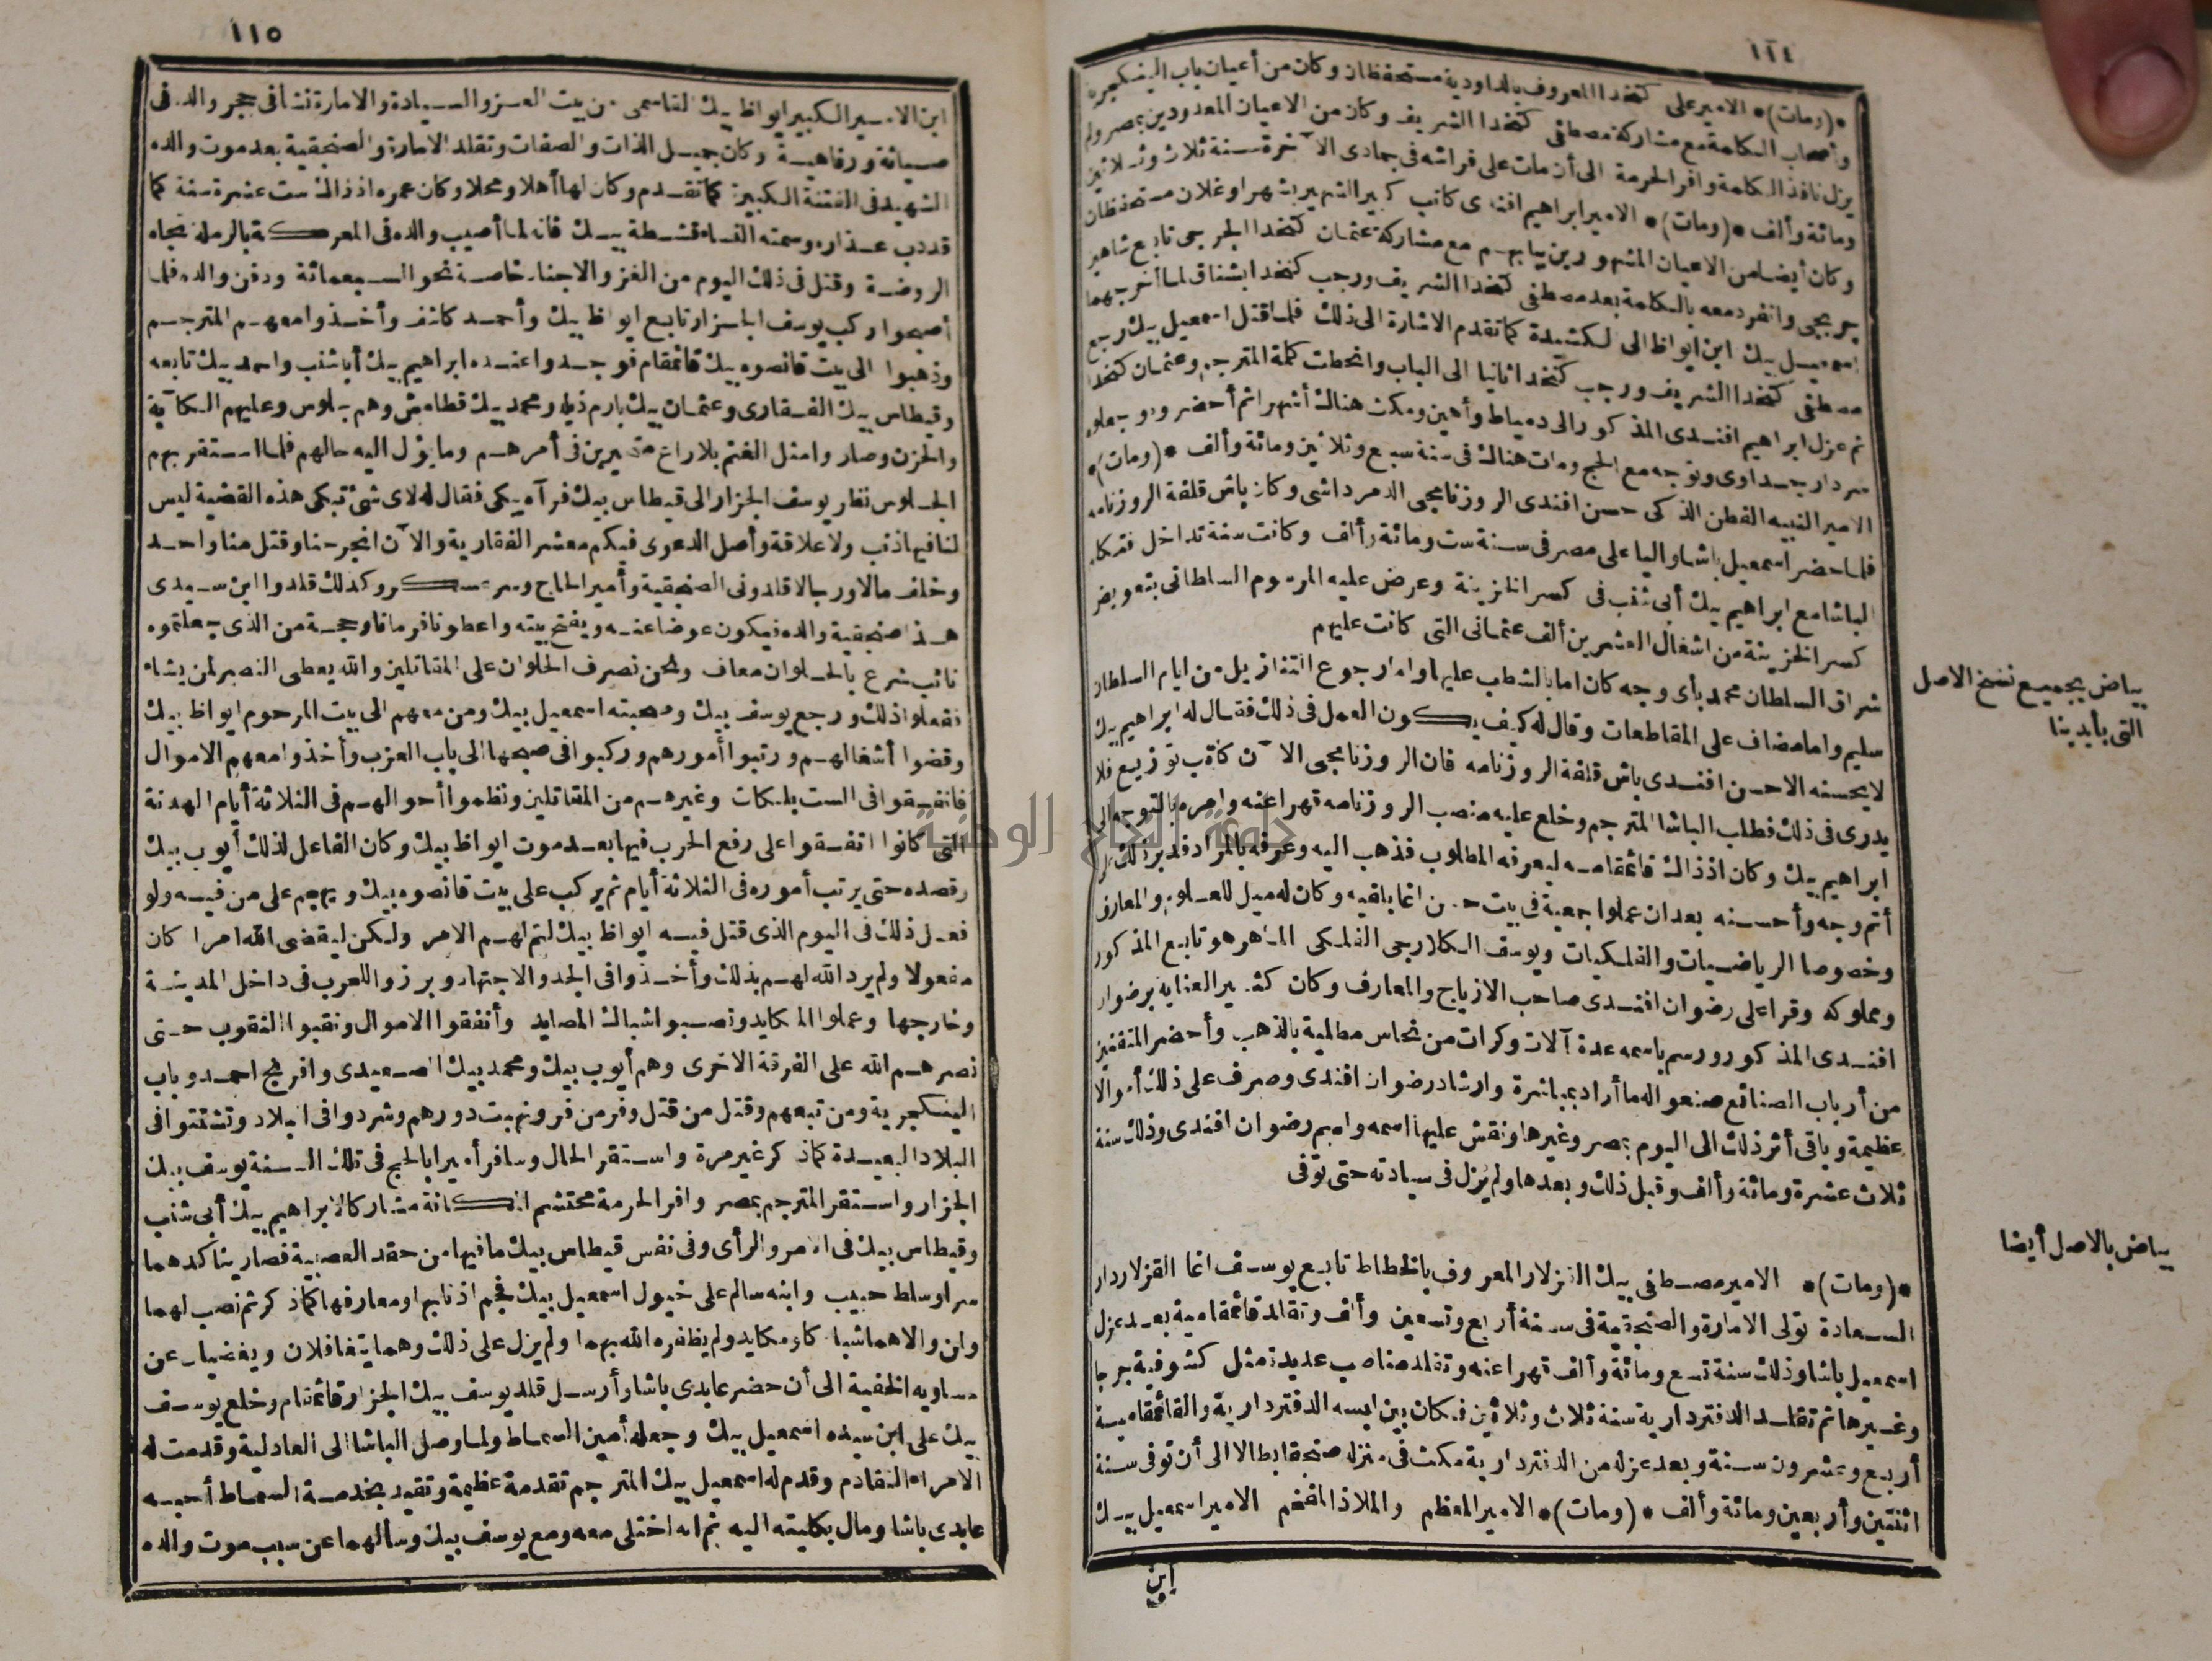 ١١٤
*(ومات)* الامير على كتخدا المعروف بالداودية مستحفظان وكان من أعيان باب الينكجرية
وأصحاب الكلمة مع مشاركة مصطفى كتخدا الشريف وكان من الاعيان المعدودين بمصر ولم
يزل نافذ الكلمة وافر الحرمة الى أن مات على فراشه فى جمادى الآخرة سنة ثلاث وثلاثين
ومائة وألف *(ومات)* الامير ابراهيم افندى كاتب كبير الشهير بشهر اوغلان مستحفظان
وكان أيضا من الاعيان المشهورين ببابهم مع مشاركة عثمان كتخدا الجرجى تابع شاهين
جربجى وانفرد معه بالكلمة بعد مصطفى كتخدا الشريف ورجب كتخدا بشناق لما أخرجهما
اسمعيل بيك ابن ايواظ الى الكشيدة كما تقدم الاشارة الى ذلك فلما قتل اسمعيل بيك رجع
مصطفى كتخدا الشريف ورجب كتخدا ثانيا الى الباب وانحطت كلمة المترجم وعثمان كتخدا
ثم عزل ابراهيم افندى المذكور الى دمياط وأهين ومكث هناك أشهرا ثم أحضروه وجعلوه
سردار جداوى وتوجه مع الحج ومات هناك فى سنة سبع وثلاثين ومائة وألف *(ومات)*
الامير النبيه الفطن الذكى حسن افندى الروزنامجى الدمرداشى وكان باش قلفة الروزنامه
فلما حضر اسمعيل باشا واليا على مصر فى سنة ست ومائة وألف وكانت سنة تداخل فتكلم
الباشا مع ابراهيم بيك أبى شنب فى كسر الخزينة وعرض عليه المرسوم السلطانى بتعويض
كسر الخزينة من اشغال العشرين ألف عثمانى التى كانت عليهم
بياض بجميع نسخ الاصل
التى بأيدينا
شراق السلطان محمد بأى وجه كان اما بالشطب عليها واما رجوع التنازيل من ايام السلطان
سليم واما مضاف على المقاطعات وقال له كيف يكون العمل فى ذلك فقال له ابراهيم بيك
لا يحسنه الا حسن افندى باش قلفة الروزنامه فان الروزنامجى الآن كاتب توزيع فلا
يدرى فى ذلك فطلب الباشا المترجم وخلع عليه منصب الروزنامه قهرا عنه وامره بالتوجه الى
ابراهيم بيك وكان اذ ذاك قائمقامه ليعرفه المطلوب فذهب اليه وعرفه بالمراد فدبر ذلك على
أتم وجه وأحسنه بعد ان عملوا جمعية فى بيت حسن اغا بلقيه وكان له ميل للعلوم والمعارف
وخصوصا الرياضيات والفلكيات ويوسف الكلارجى الفلكى الماهر هو تابع المذكور
ومملوكه وقرأ على رضوان افندى صاحب الازياج والمعارف وكان كثير العناية برضوان
افندى المذكور ورسم باسمه عدة آلات وكرات من نحاس مطلية بالذهب وأحضر المتقنين
من أرباب الصنائع صنعوا له ما أراد بمباشرة وارشاد رضوان افندى وصرف على ذلك أموالا
عظيمة وباقى أثر ذلك الى اليوم بمصر وغيرها ونقش عليها اسمه واسم رضوان افندى وذلك سنة
ثلاث عشرة ومائة وألف وقبل ذلك وبعدها ولم يزل فى سيادته حتى توفى
بياض بالاصل أيضا
*(ومات)* الامير مصطفى بيك القزلار المعروف بالخطاط تابع يوسف اغا القزلار دار
السعادة تولى الامارة والصنجقية فى سنة أربع وتسعين وألف وتقلد قائمقامية بعد عزل
اسمعيل باشا وذلك سنة تسع ومائة وألف قهرا عنه وتقلد مناصب عديدة مثل كشوفية جرجا
وغيرها ثم تقلد الدفتردارية سنة ثلاث وثلاثين فكان بين لبسه الدفتردارية والقائمقامية
أربع وعشرون سنة وبعد عزله من الدفتردارية مكث فى منزله صنجقا بطالا الى أن توفى سنة
اثنتين وأربعين ومائة وألف *(ومات)* الامير المعظم والملاذ المفخم الامير اسمعيل بيك
ابن
١١٥
ابن الامير الكبير ايواظ بيك القاسمى من بيت العز والسيادة والامارة نشأ فى حجر والده فى
صيانة ورفاهية وكان جميل الذات والصفات وتقلد الامارة والصنجقية بعد موت والده
الشهيد فى الفتنة الكبيرة كما تقدم وكان لها أهلا ومحلا وكان عمره اذ ذاك ست عشرة سنة كما
قد دب عذاره وسمته النساء قشطة بيك فانه لما أصيب والده فى المعركة بالرملة تجاه
الروضة وقتل فى ذلك اليوم من الغز والاجناد خاصة نحو السبعمائة ودفن والده فلما
أصبحوا ركب يوسف الجزار تابع ايواظ بيك وأحمد كاشف وأخذوا معهم المترجم
وذهبوا الى بيت قانصوه بيك قائمقام فوجدوا عنده ابراهيم بيك أبا شنب واحمد بيك تابعه
وقيطاس بيك الفقارى وعثمان بيك بارم ذيله ومحمد بيك قطامش وهم جلوس وعليهم الكآبة
والحزن وصاروا مثل الغنم بلا راع متحيرين فى أمرهم وما يؤل اليه حالهم فلما استقر بهم
الجلوس نظر يوسف الجزار الى قيطاس بيك فرآه يبكى فقال له لاى شئ تبكى هذه القضية ليس
لنا فيها ذنب ولا علاقة وأصل الدعوى فيكم معشر الفقارية والآن انجرحنا وقتل منا واحد
وخلف مالا ورجالا قلدونى الصنجقية وأمير الحاج وسر عسكر وكذلك قلدوا ابن سيدى
هذا صنجقية والده فيكون عوضا عنه ويفتح بيته واعطونا فرمانا وحجة من الذى جعلتموه
نائب شرع بالحلوان معاف ونحن نصرف الحلوان على المقاتلين والله يعطى النصر لمن يشاء
ففعلوا ذلك ورجع يوسف بيك وصحبته اسمعيل بيك ومن معهم الى بيت المرحوم ايواظ بيك
وقضوا أشغالهم ورتبوا أمورهم وركبوا فى صبحها الى باب العزب وأخذوا معهم الاموال
فانفقوا فى الست بلكات وغيرهم من المقاتلين ونظموا أحوالهم فى الثلاثة أيام الهدنة
التى كانوا اتفقوا على رفع الحرب فيها بعد موت ايواظ بيك وكان الفاعل لذلك أيوب بيك
وقصده حتى يرتب أموره فى الثلاثة أيام ثم يركب على بيت قانصوه بيك ويهجم على من فيه ولو
فعل ذلك فى اليوم الذى قتل فيه ايواظ بيك لتم لهم الامر ولكن ليقضى الله امرا كان
مفعولا ولم يرد الله لهم بذلك وأخذوا فى الجد والاجتهاد وبرزوا للحرب فى داخل المدينة
وخارجها وعملوا المكايد ونصبوا شباك المصايد وأنفقوا الاموال ونقبوا النقوب حتى
نصرهم الله على الفرقة الاخرى وهم أيوب بيك ومحمد بيك الصعيدى وافرنج احمد وباب
الينكجرية ومن تبعهم وقتل من قتل وفر من فر ونهبت دورهم وشردوا فى البلاد وتشتتوا فى
البلاد البعيدة كما ذكر غير مرة واستقر الحال وسافر أميرا بالحج فى تلك السنة يوسف بيك
الجزار واستقر المترجم بمصر وافر الحرمة محتشم المكانة مشاركا لابراهيم بيك أبى شنب
وقيطاس بيك فى الامر والرأى وفى نفس قيطاس بيك ما فيها من حقد العصبية فصار يناكدهما
سرا وسلط حبيب وابنه سالم على خيول اسمعيل بيك فجم اذنابها ومعارفها كما ذكر ثم نصب لهما
ولمن والاهما شباك ومكايد ولم يظفره الله بهما ولم يزل على ذلك وهما يتغافلان ويغضيان عن
مساويه الخفية الى أن حضر عابدى باشا وأرسل قلد يوسف بيك الجزار قائمقام وخلع يوسف
بيك على ابن سيده اسمعيل بيك وجعله أمين السماط ولما وصل الباشا الى العادلية وقدمت له
الامراء التقادم وقدم له اسمعيل بيك المترجم تقدمة عظيمة وتقيد بخدمة السماط أحبه
عابدى باشا ومال بكليته اليه ثم انه اختلى معه ومع يوسف بيك وسألهما عن سبب موت والده
جامعة النجاح الوطنية